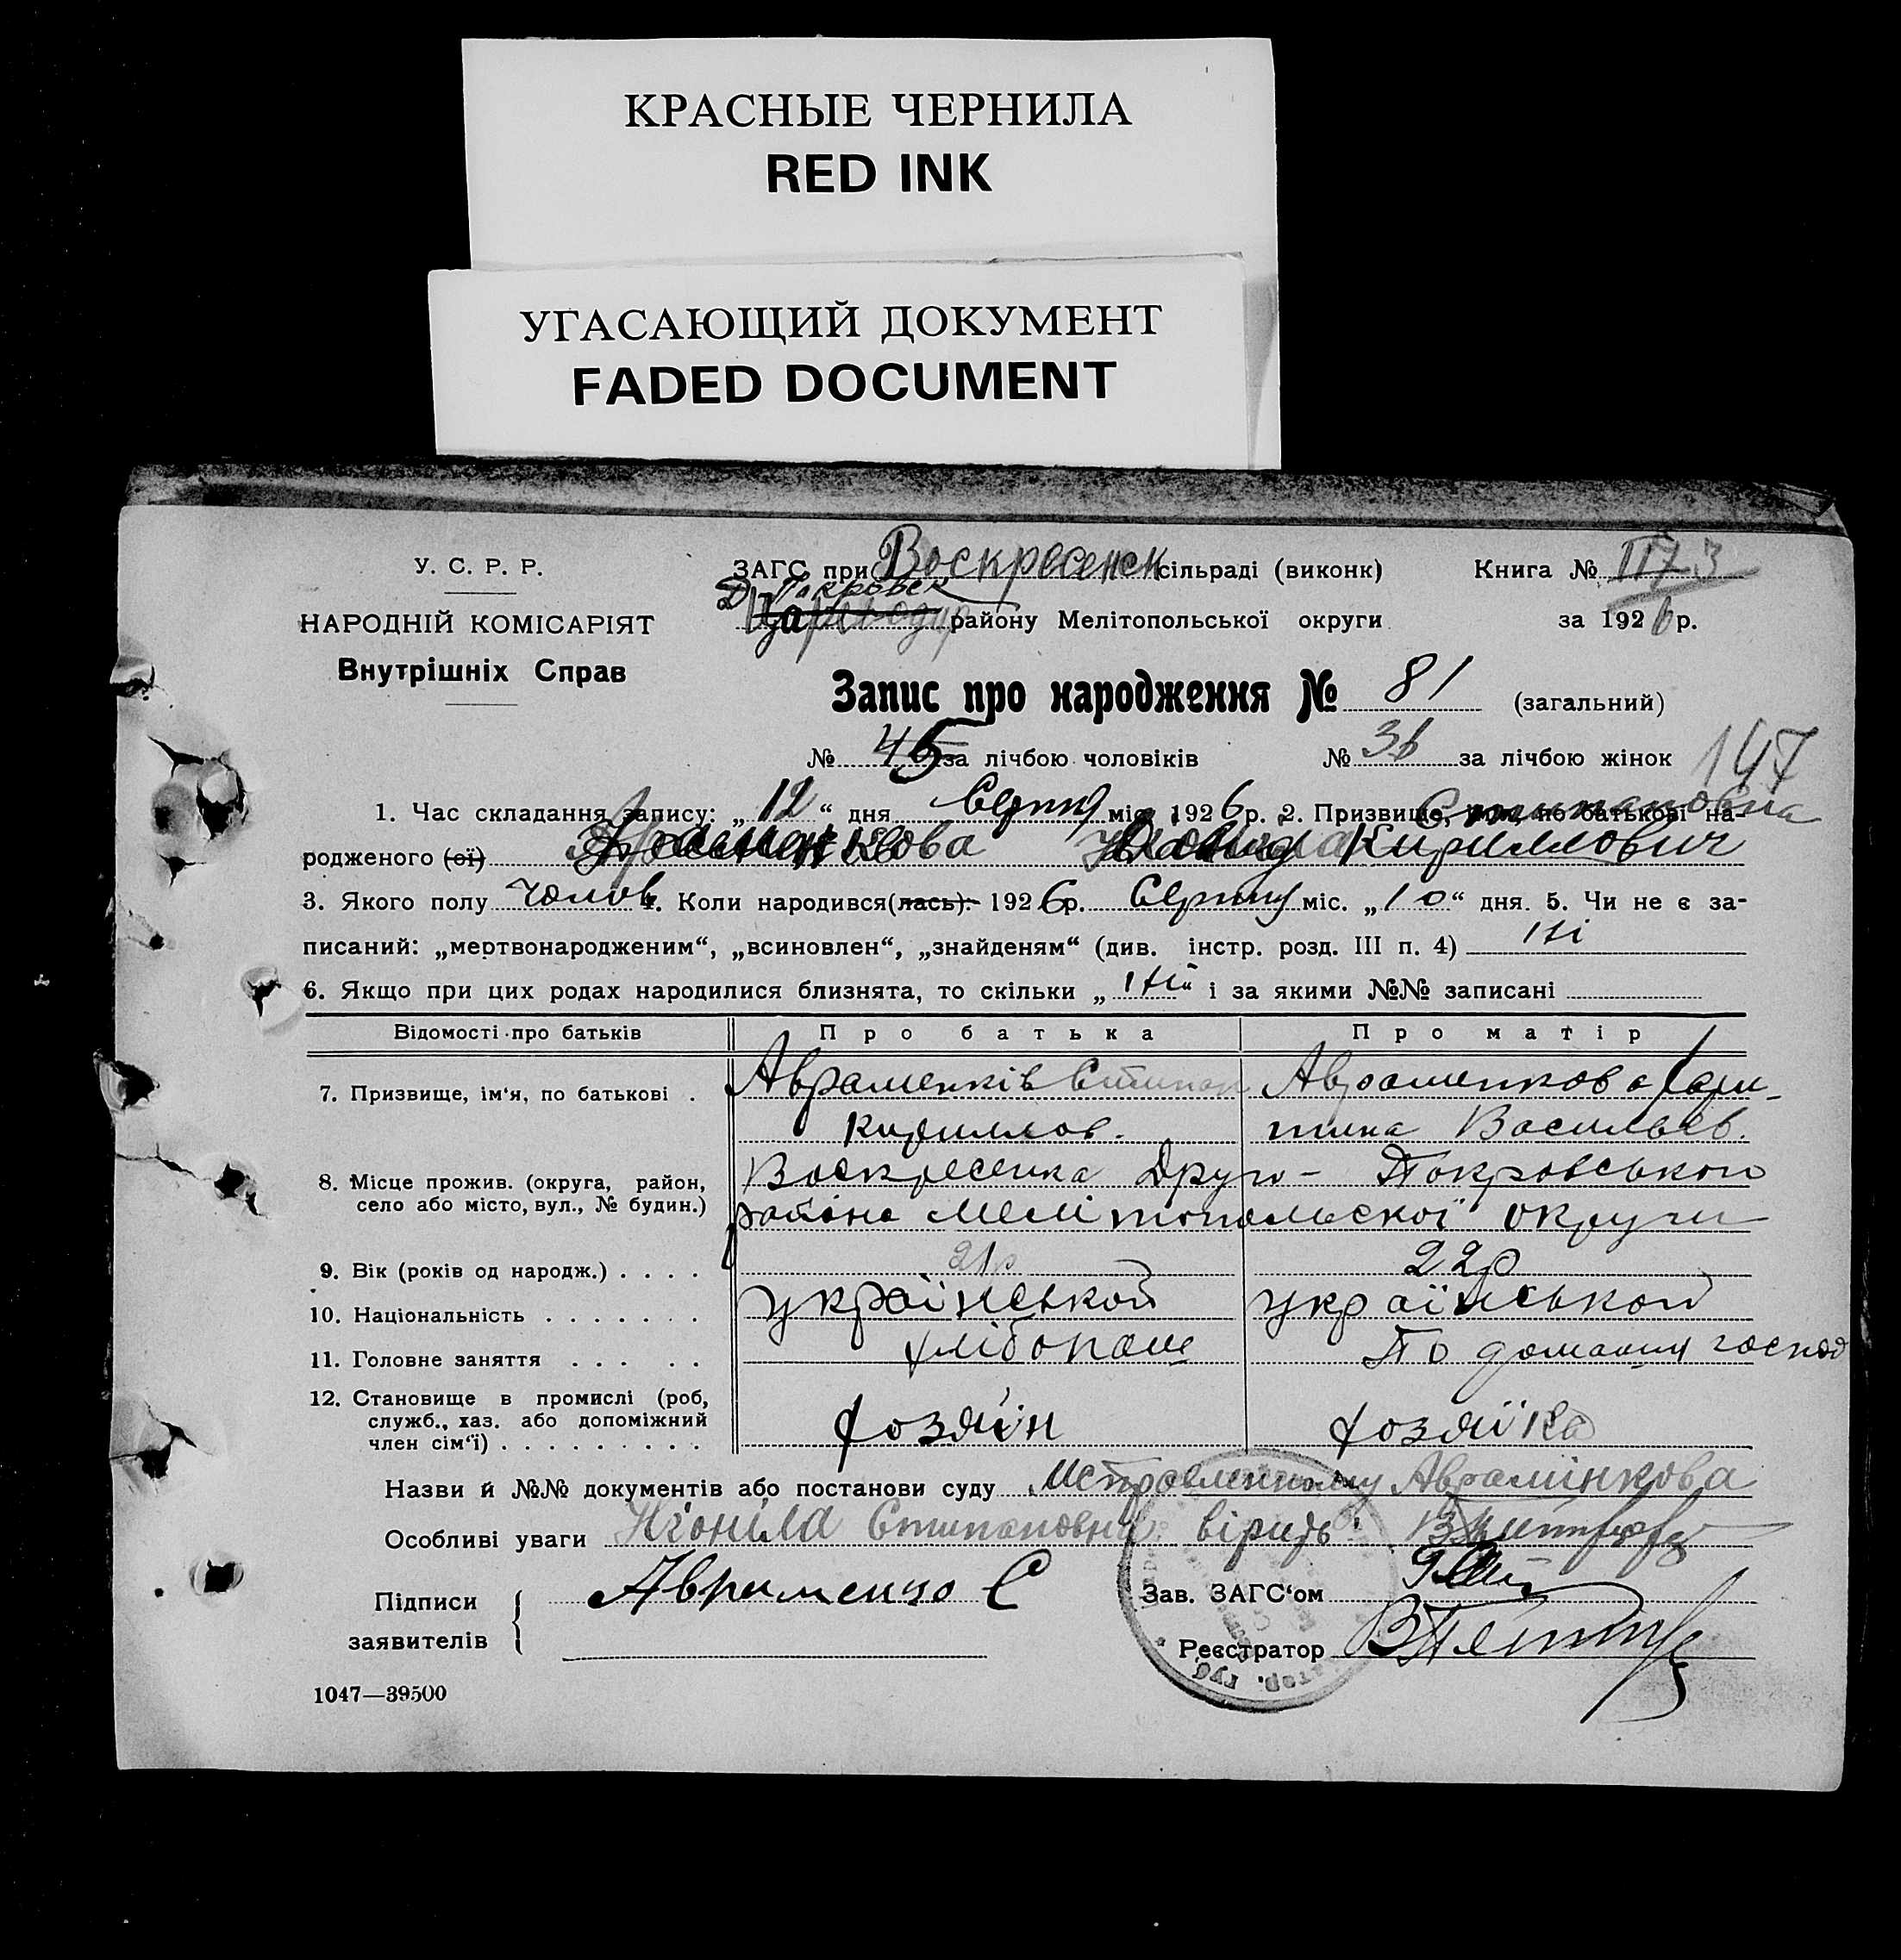 КРАСНЫЕ ЧЕРНИЛА
RED INK
УГАСАЮЩИЙ ДОКУМЕНТ
FADED DOCUMENT
У. С. Р. Р.
НАРОДНІЙ КОМІСАРІЯТ
Внутрішніх Справ
ЗАГС при Воскресенск сільраді (виконк)
Книга №
Д-Покровск
району Мелітопольської округи
за 1926 р.
Запис про народження № 81 (загальний)
№ 45 за лічбою чоловіків № 36 за лічбою жінок
147
1. Час складання запису: „12“ дня Серпня міс. 1926 р. 2. Призвище, ім'я, по батькові на-
Степановна
родженого (ої) Кириллович
3. Якого полу Чолов 4. Коли народився(лась): 1926 р. Серпня міс. „10“ дня. 5. Чи не є за-
писаний: „мертвонародженим“, „всиновлен“, „знайденям“ (див. інстр. розд. III п. 4) Ні
6. Якщо при цих родах народилися близнята, то скільки „Ні“ і за якими №№ записані
Відомості про батьків
Про батька
Про матір
7. Призвище, ім'я, по батькові .
Авраменків Степан
Кириллов.
Авраменкова Хари-
тина Васильев.
8. Місце прожив. (округа, район,
село або місто, вул., № будин.)
Воскресенка Друго-Покровської
района Мелітопольскої округи
9. Вік (років од народж.) . . . .
21р
22р
10. Національність . . . . . . .
української
української
11. Головне заняття . . . . .
хлібопаш
По домашня господ
12. Становище в промислі (роб,
служб., хаз. або допоміжний
член сім'ї) . . . . . . . . .
хозяїн
хозяїка
Назви й №№ документів або постанови суду Исправленному Аврамінкова
Особливі уваги Степановна вірить
Підписи
заявителів
Авраменко С
Зав. ЗАГС'ом
Реєстратор
1047—39500